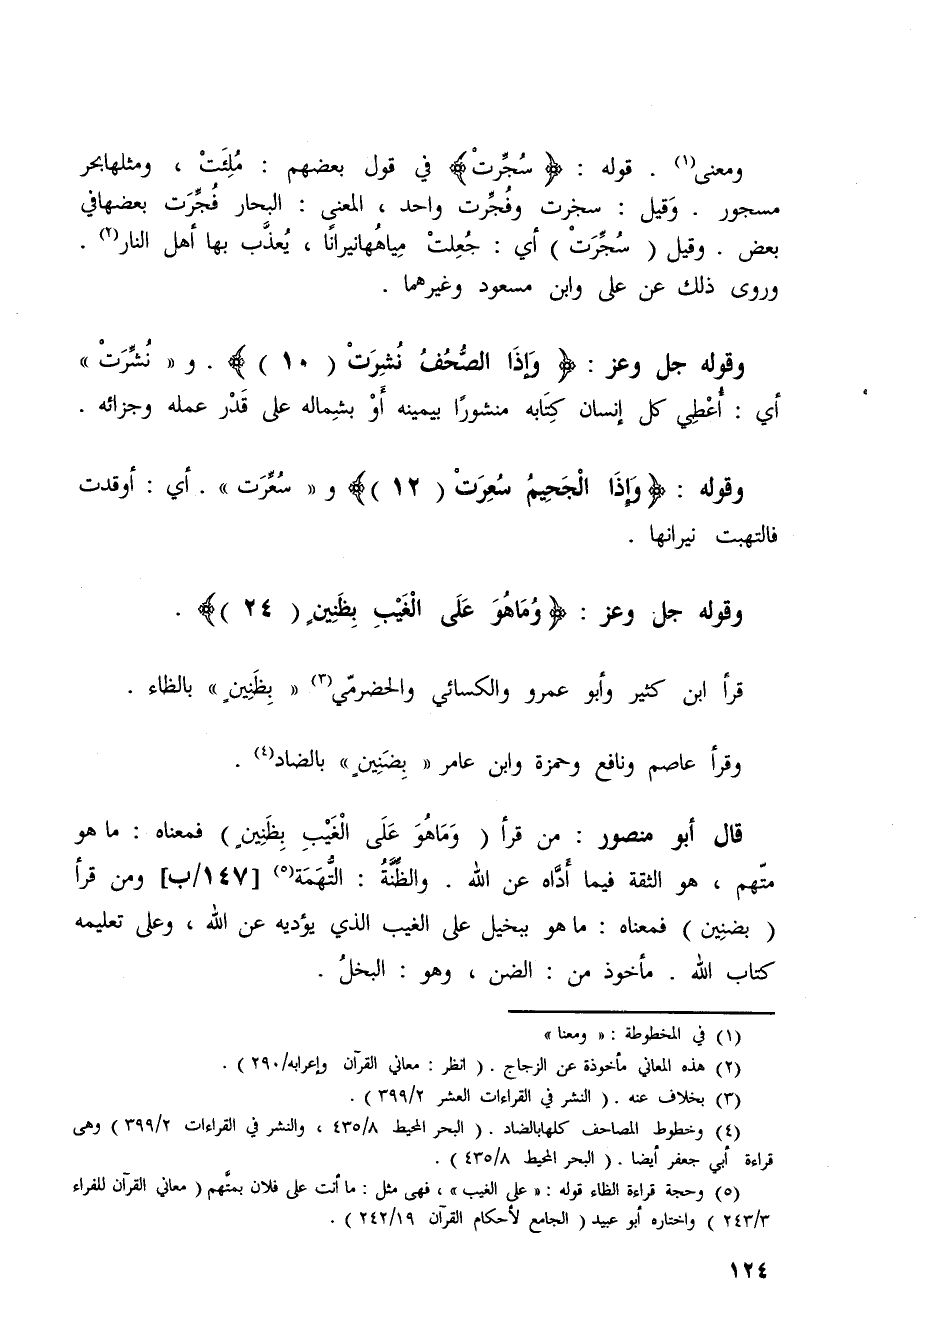 ومعنى(١) . قوله : ﴿ سُجِّرتْ﴾ في قول بعضهم : مُلِئَتْ ، ومثلهابحر
مسجور . وَقيل : سجرت وفُجِّرت واحد ، المعنى : البحار فُجِّرَت بعضهافي
بعض . وقيل ( سُجِّرَتْ ) أي : جُعِلتْ مِياهُهانيرانًا ، يُعذَّب بها أهل النار(٢) .
وروى ذلك عن على وابن مسعود وغيرهما .
وقوله جل وعز : ﴿ وَإِذَا الصُّحُفُ نُشِرَتْ ( ١٠ ) ﴾ . و « نُشِّرَتْ »
أي : أُعْطِي كل إنسان كِتَابه منشورًا بيمينه أَوْ بشِماله على قَدْر عمله وجزائه .
وقوله : ﴿ وَإِذَا الْجَحِيمُ سُعِرَتْ ( ١٢ )﴾ و « سُعِّرَت » . أي : أوقدت
فالتهبت نيرانها .
وقوله جل وعز : ﴿ وَمَاهُوَ عَلَى الْغَيْبِ بِظَنِينٍ ( ٢٤ )﴾ .
قرأ ابن كثير وأبو عمرو والكسائي والحضرمّي(٣) « بِظَنِينٍ » بالظاء .
وقرأ عاصم ونافع وحمزة وابن عامر « بِضَنِينٍ » بالضاد(٤) .
قال أبو منصور : من قرأ ( وَمَاهُوَ عَلَى الْغَيْبِ بِظَنِينٍ ) فمعناه : ما هو
متّهم ، هو الثقة فيما أَدَّاه عن الله . والظِّنَّةُ : التُّهَمَة(٥) [١٤٧/ب] ومن قرأ
( بضنِين ) فمعناه : ما هو ببخيل على الغيب الذي يؤديه عن الله ، وعلى تعليمه
كتاب الله . مأخوذ من : الضن ، وهو : البخلُ .
(١) في المخطوطة : « ومعنا »
(٢) هذه المعاني مأخوذة عن الزجاج . ( انظر : معاني القرآن وإعرابه/٢٩٠ ) .
(٣) بخلاف عنه . ( النشر في القراءات العشر ٣٩٩/٢ ) .
(٤) وخطوط المصاحف كلهابالضاد . ( البحر المحيط ٤٣٥/٨ ، والنشر في القراءات ٣٩٩/٢ ) وهى
قراءة أبي جعفر أيضا . ( البحر المحيط ٤٣٥/٨ ) .
(٥) وحجة قراءة الظاء قوله : « على الغيب » ، فهى مثل : ما أنت على فلان بمتَّهم ( معاني القرآن للفراء
٢٤٣/٣ ) واختاره أبو عبيد ( الجامع لأحكام القرآن ٢٤٢/١٩ ) .
١٢٤